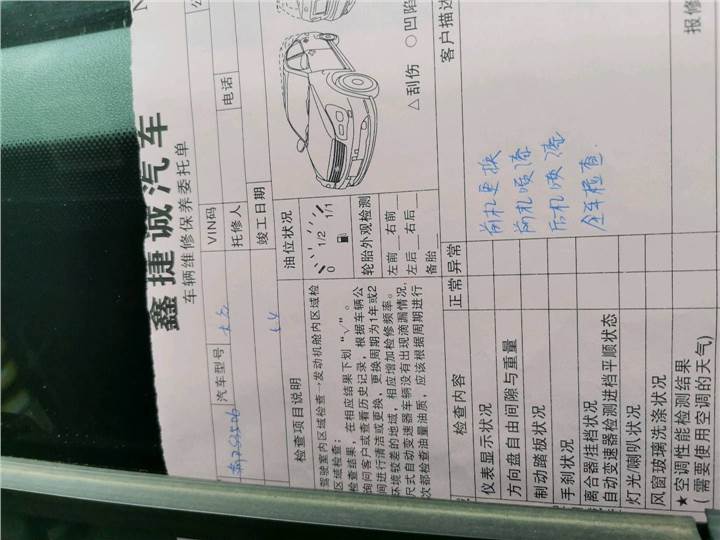 鑫捷诚汽车
车辆维修保养委托单
汽车型号
VIN码
托修人
电话
竣工日期
检查项目说明
油位状况
驾驶室内区域检查→发动机舱内区域检
区域检查；
检查结果，在相应结果下划“√”。
询问客户或查看历史记录，根据车辆公
间进行清洁或更换，更换周期为1年或2
环境较差的地域，相应增加检修频率。
尺式自动变速器车辆没有出现滴漏情况，
次都检查油量油质，应该根据周期进行
0 1/2 1/1
轮胎外观检测
左前 右前
左后 右后
备胎
△刮伤 ○凹陷
检查内容
正常
异常
客户描述
仪表显示状况
方向盘自由间隙与重量
制动踏板状况
手刹状况
离合器挂档状况
自动变速器检测进档平顺状态
灯光/喇叭状况
风窗玻璃洗涤状况
★空调性能检测结果
(需要使用空调的天气)
前杠更换
前杠喷漆
后杠喷漆
全车检查
报修